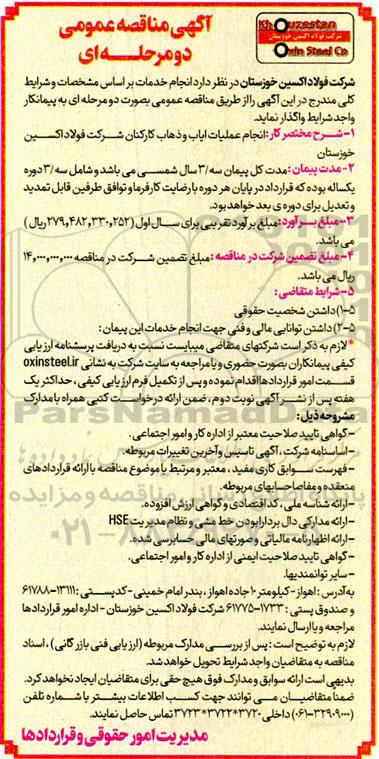 آگهی مناقصه عمومی
دو مرحله ای
Khouzestan
شرکت فولاد اکسین خوزستان
Oxin Steel Co
شرکت فولاد اکسین خوزستان در نظر دارد انجام خدمات بر اساس مشخصات و شرایط
کلی مندرج در این آگهی را از طریق مناقصه عمومی بصورت دو مرحله ای به پیمانکار
واجد شرایط واگذار نماید.
۱-شرح مختصر کار: انجام عملیات ایاب و ذهاب کارکنان شرکت فولاد اکسین
خوزستان
۲-مدت پیمان: مدت کل پیمان سه/۳ سال شمسی می باشد و شامل سه/۳ دوره
یکساله بوده که قرارداد در پایان هر دوره با رضایت کارفرما و توافق طرفین قابل تمدید
و تعدیل برای دوره ی بعد خواهد بود.
۳-مبلغ برآورد: مبلغ برآورد تقریبی برای سال اول (۲۷۹,۴۸۲,۳۳۰,۲۵۲ ریال)
می باشد.
۴-مبلغ تضمین شرکت در مناقصه: مبلغ تضمین شرکت در مناقصه ۱۴,۰۰۰,۰۰۰,۰۰۰
ریال می باشد.
۵-شرایط متقاضی:
۵-۱) داشتن شخصیت حقوقی
۵-۲) داشتن توانایی مالی و فنی جهت انجام خدمات این پیمان:
*لازم به ذکر است شرکتهای متقاضی میبایست نسبت به دریافت پرسشنامه ارزیابی
کیفی پیمانکاران بصورت حضوری و یا مراجعه به سایت شرکت به نشانی oxinsteel.ir
قسمت امور قراردادها اقدام نموده و پس از تکمیل فرم ارزیابی کیفی، حداکثر یک
هفته پس از نشر آگهی نوبت دوم، ضمن ارائه درخواست کتبی همراه با مدارک
مشروحه ذیل:
-گواهی تایید صلاحیت معتبر از اداره کار و امور اجتماعی.
-اساسنامه شرکت، آگهی تاسیس و آخرین تغییرات مربوطه.
-فهرست سوابق کاری مفید، معتبر و مرتبط با موضوع مناقصه با ارائه قراردادهای
منعقده و مفاصاحسابهای مربوطه.
-ارائه شناسه ملی، کد اقتصادی و گواهی ارزش افزوده.
-ارائه مدارکی دال بر دارا بودن خط مشی و نظام مدیریت HSE
-ارائه اظهارنامه مالیاتی و صورتهای مالی حسابرسی شده.
-گواهی تایید صلاحیت ایمنی از اداره کار و امور اجتماعی.
-سایر توانمندیها.
به آدرس: اهواز-کیلومتر ۱۰ جاده اهواز، بندر امام خمینی-کدپستی: ۱۳۱۱۱-۶۱۷۸۸
و صندوق پستی: ۱۷۳۳-۶۱۷۷۵ شرکت فولاد اکسین خوزستان-اداره امور قراردادها
مراجعه و یا ارسال نمایند.
لازم به توضیح است: پس از بررسی مدارک مربوطه (ارزیابی فنی بازرگانی)، اسناد
مناقصه به متقاضیان واجد شرایط تحویل خواهد شد.
بدیهی است ارائه سوابق و مدارک فوق هیچ حقی برای متقاضیان ایجاد نخواهد کرد.
ضمنا متقاضیان می توانند جهت کسب اطلاعات بیشتر با شماره تلفن
(۳۲۹۰۹۰۰۰-۰۶۱) داخلی ۳۷۲۰*۳۷۲۲*۳۷۲۳ تماس حاصل نمایند.
مدیریت امور حقوقی و قراردادها